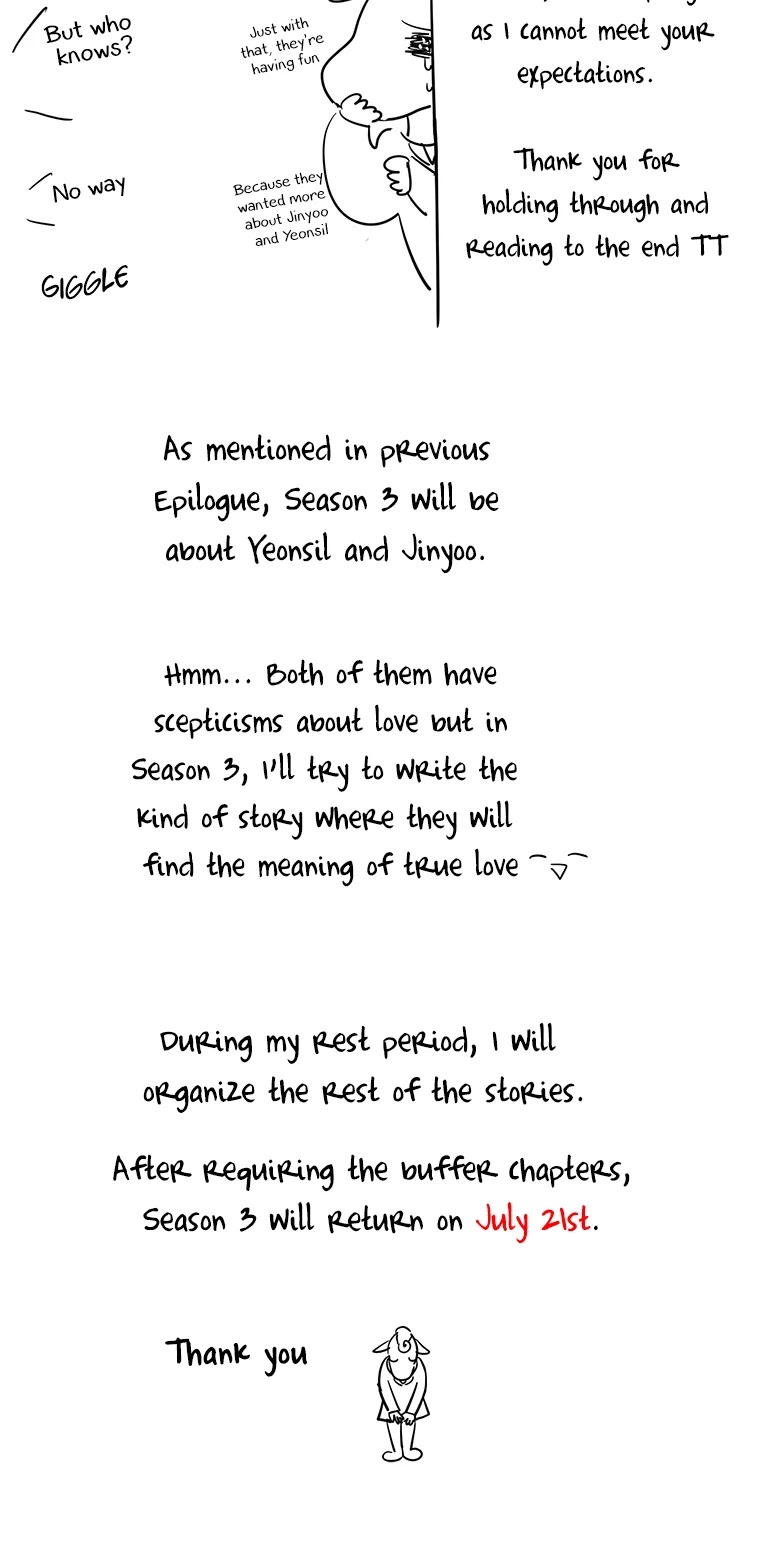 But who
knows?
No way
GIGGLE
Just with
that, they're
having fun
Because they
wanted more
about Jinyoo
and Yeonsil
as I cannot meet your
expectations.
Thank you for
holding through and
reading to the end TT
As mentioned in previous
Epilogue, Season 3 will be
about Yeonsil and Jinyoo.
Hmm... Both of them have
scepticisms about love but in
Season 3, I'll try to write the
kind of story where they will
find the meaning of true love ¯▽¯
During my rest period, I will
organize the rest of the stories.
After requiring the buffer chapters,
Season 3 will return on July 21st.
Thank you